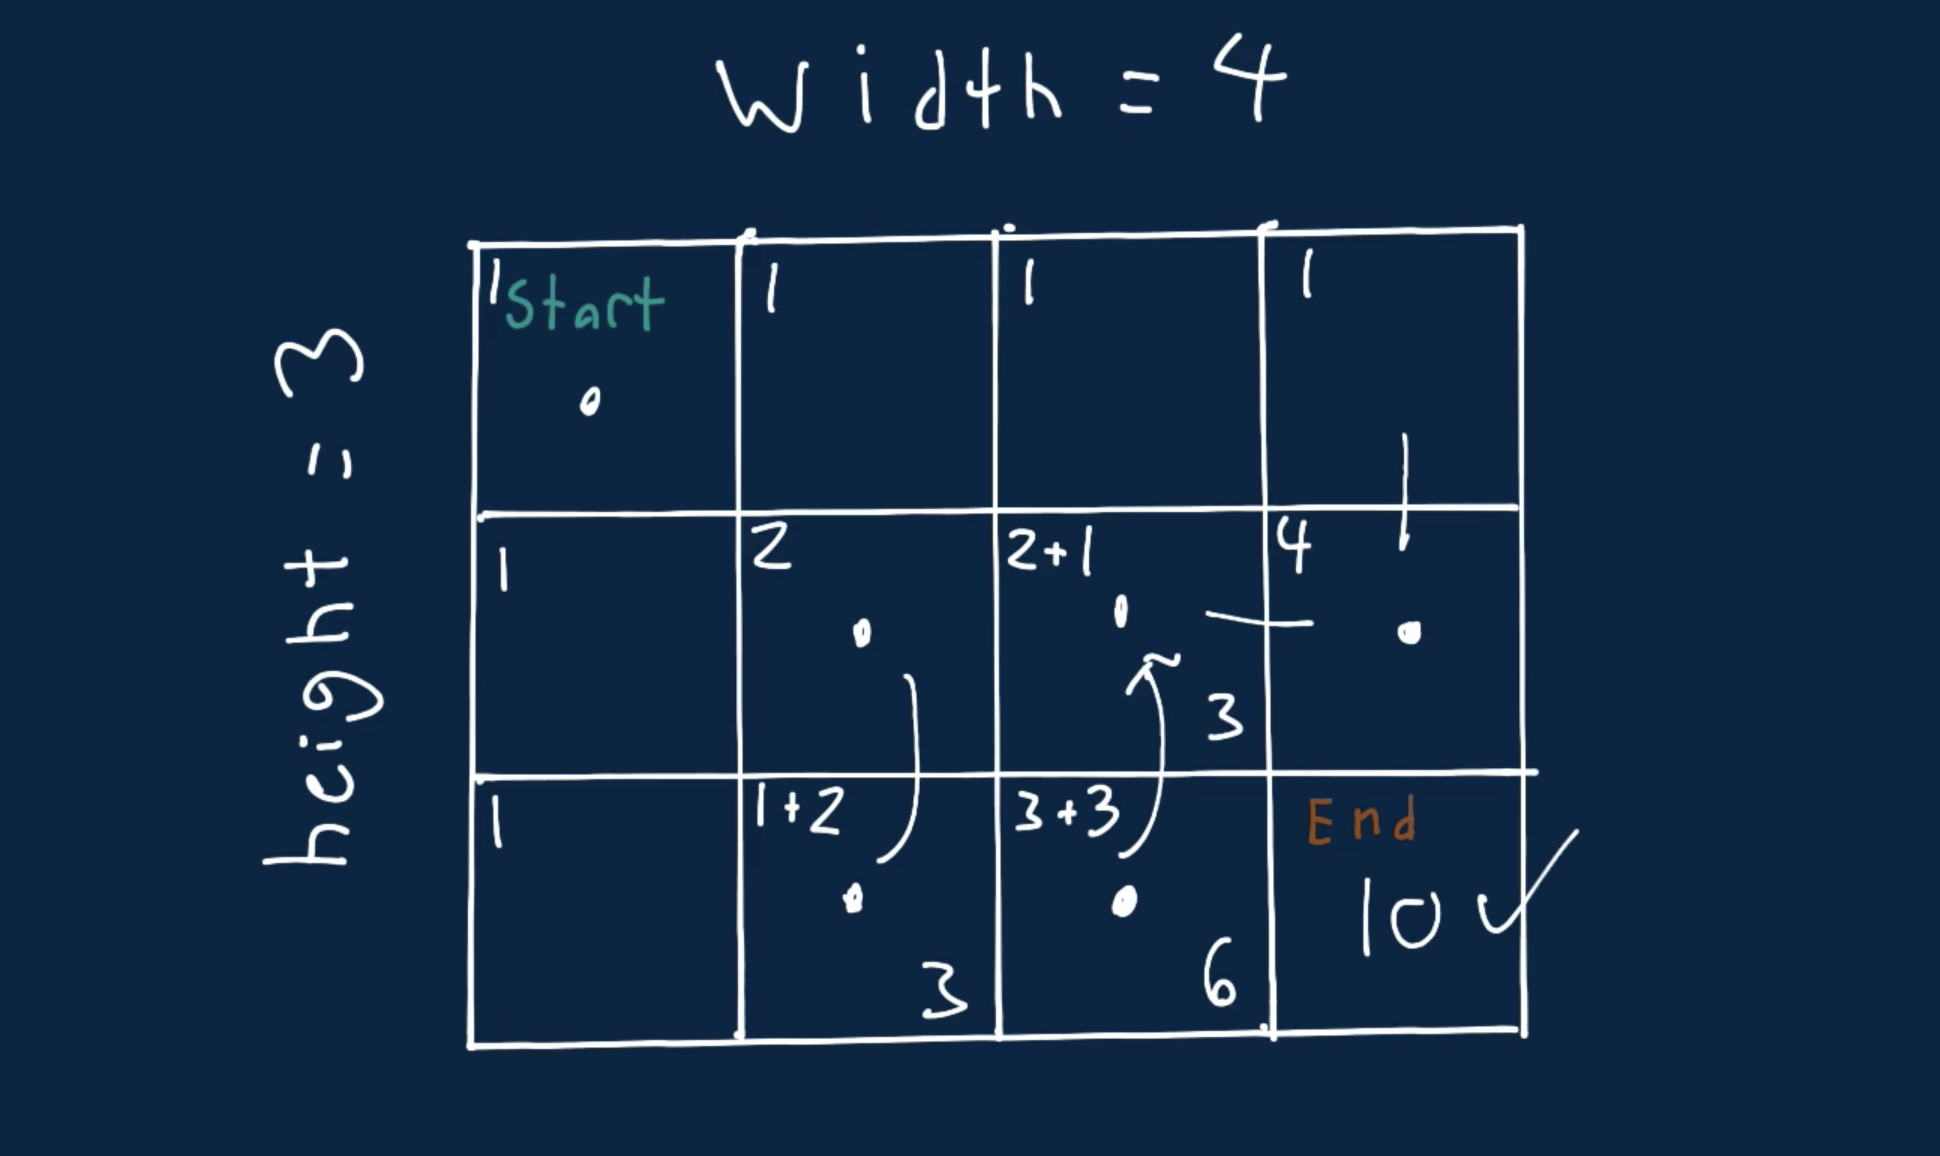 width = 4
height = 3
1 Start 1 1 1
1 2 2+1 4
3
1 1+2 3+3 End
10
3 6